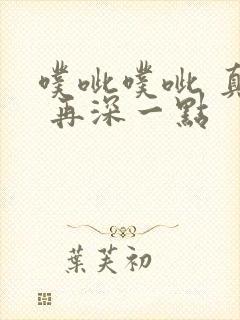 噗呲噗呲 真
再深一點
葉芙初